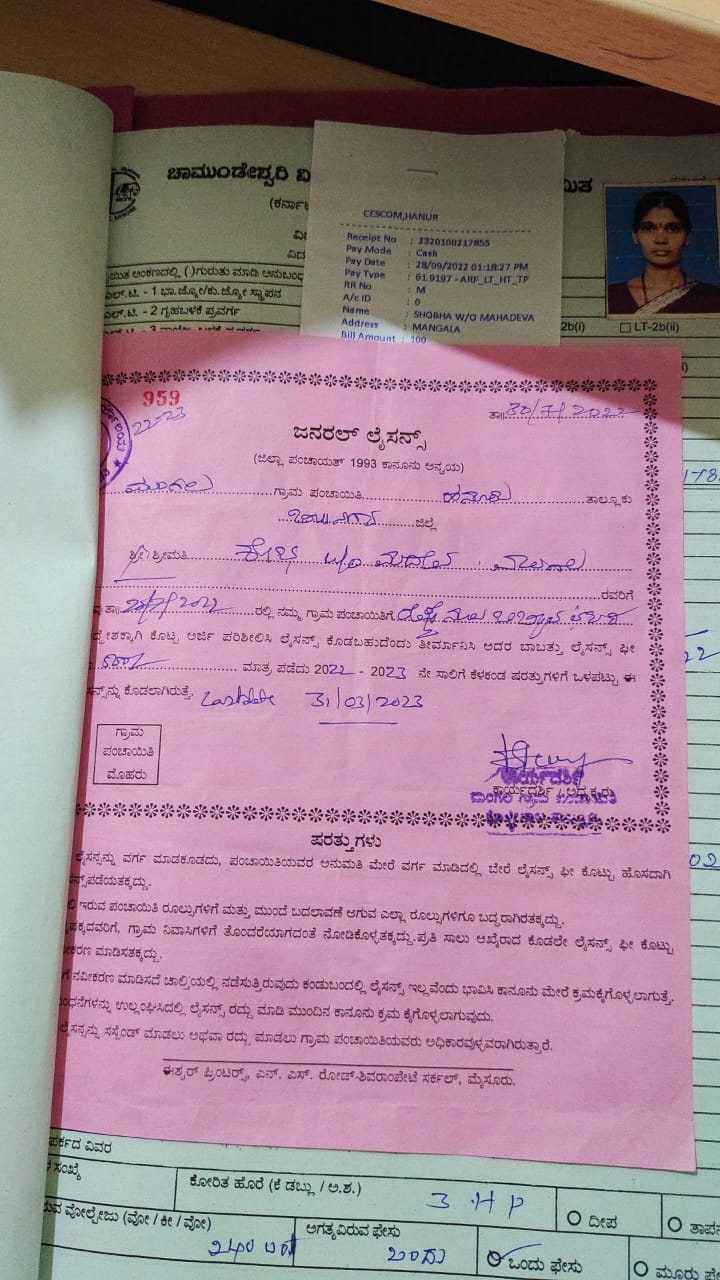 ಚಾಮುಂಡೇಶ್ವರಿ ವಿ
(ಕರ್ನಾಟ
CESCOM,HANUR
Receipt No : 2320100217855
Pay Mode : Cash
Pay Date : 28/09/2022 01:18:27 PM
Pay Type : 61.9197 - ARF_LT_HT_TP
RR No : M
A/c ID : 0
Name : SHOBHA W/O MAHADEVA
Address : MANGALA
Bill Amount : 100
ಅಂಕಣದಲ್ಲಿ ( )ಗುರುತು ಮಾಡಿ ಅನುಬಂಧ
ಎಲ್.ಟಿ. - 1 ಭಾ.ಜ್ಯೋ/ಕು.ಜ್ಯೋ ಸ್ಥಾಪನ
ಎಲ್.ಟಿ. - 2 ಗೃಹಬಳಕೆ ಪ್ರವರ್ಗ
2b(i) LT-2b(ii)
959
22-23
ತಾ|| 30/7/2022
ಜನರಲ್ ಲೈಸನ್ಸ್
(ಜಿಲ್ಲಾ ಪಂಚಾಯತ್ 1993 ಕಾನೂನು ಅನ್ವಯ)
ಮಂಗಲ ಗ್ರಾಮ ಪಂಚಾಯಿತಿ ಹನೂರು ತಾಲ್ಲೂಕು
ಜಿಲ್ಲೆ
ಶ್ರೀ/ಶ್ರೀಮತಿ ಶೋಭ w/o ಮಹದೇವ ಮಂಗಲ
ರವರಿಗೆ
ತಾ|| 2022 ರಲ್ಲಿ ನಮ್ಮ ಗ್ರಾಮ ಪಂಚಾಯಿತಿಗೆ
ಕೊಟ್ಟ ಅರ್ಜಿ ಪರಿಶೀಲಿಸಿ ಲೈಸನ್ಸ್ ಕೊಡಬಹುದೆಂದು ತೀರ್ಮಾನಿಸಿ ಅದರ ಬಾಬತ್ತು ಲೈಸನ್ಸ್ ಫೀ
500/- ಮಾತ್ರ ಪಡೆದು 2022 - 2023 ನೇ ಸಾಲಿಗೆ ಕೆಳಕಂಡ ಷರತ್ತುಗಳಿಗೆ ಒಳಪಟ್ಟು ಈ
ಕೊಡಲಾಗಿರುತ್ತೆ. Lastdate 31/03/2023
ಗ್ರಾಮ
ಪಂಚಾಯಿತಿ
ಮೊಹರು
ಕಾರ್ಯದರ್ಶಿ
ಕಾರ್ಯದರ್ಶಿ / ಅಧ್ಯಕ್ಷರು
ಮಂಗಲ ಗ್ರಾಮ ಪಂಚಾಯಿತಿ
ಷರತ್ತುಗಳು
ಲೈಸನ್ಸನ್ನು ವರ್ಗ ಮಾಡಕೂಡದು, ಪಂಚಾಯಿತಿಯವರ ಅನುಮತಿ ಮೇರೆ ವರ್ಗ ಮಾಡಿದಲ್ಲಿ ಬೇರೆ ಲೈಸನ್ಸ್ ಫೀ ಕೊಟ್ಟು ಹೊಸದಾಗಿ
ನ್ಸ್‌ಪಡೆಯತಕ್ಕದ್ದು.
ಇರುವ ಪಂಚಾಯಿತಿ ರೂಲ್ಸುಗಳಿಗೆ ಮತ್ತು ಮುಂದೆ ಬದಲಾವಣೆ ಆಗುವ ಎಲ್ಲಾ ರೂಲ್ಸುಗಳಿಗೂ ಬದ್ಧರಾಗಿರತಕ್ಕದ್ದು.
ಪಕ್ಕದವರಿಗೆ, ಗ್ರಾಮ ನಿವಾಸಿಗಳಿಗೆ ತೊಂದರೆಯಾಗದಂತೆ ನೋಡಿಕೊಳ್ಳತಕ್ಕದ್ದು.ಪ್ರತಿ ಸಾಲು ಅಖೈರಾದ ಕೂಡಲೇ ಲೈಸನ್ಸ್ ಫೀ ಕೊಟ್ಟು
ೀಕರಣ ಮಾಡಿಸತಕ್ಕದ್ದು.
ನವೀಕರಣ ಮಾಡಿಸದೆ ಚಾಲ್ತಿಯಲ್ಲಿ ನಡೆಸುತ್ತಿರುವುದು ಕಂಡುಬಂದಲ್ಲಿ ಲೈಸನ್ಸ್ ಇಲ್ಲವೆಂದು ಭಾವಿಸಿ ಕಾನೂನು ಮೇರೆ ಕ್ರಮಕೈಗೊಳ್ಳಲಾಗುತ್ತೆ.
ಬಂಧನೆಗಳನ್ನು ಉಲ್ಲಂಘಿಸಿದಲ್ಲಿ ಲೈಸನ್ಸ್ ರದ್ದು ಮಾಡಿ ಮುಂದಿನ ಕಾನೂನು ಕ್ರಮ ಕೈಗೊಳ್ಳಲಾಗುವುದು.
ಲೈಸನ್ಸನ್ನು ಸಸ್ಪೆಂಡ್ ಮಾಡಲು ಅಥವಾ ರದ್ದು ಮಾಡಲು ಗ್ರಾಮ ಪಂಚಾಯಿತಿಯವರು ಅಧಿಕಾರವುಳ್ಳವರಾಗಿರುತ್ತಾರೆ.
ಈಶ್ವರ್ ಪ್ರಿಂಟರ್ಸ್, ಎನ್. ಎಸ್. ರೋಡ್-ಶಿವರಾಂಪೇಟೆ ಸರ್ಕಲ್, ಮೈಸೂರು.
ಪರ್ಕದ ವಿವರ
ಸಂಖ್ಯೆ
ಕೋರಿತ ಹೊರೆ (ಕೆ ಡಬ್ಲು / ಅ.ಶ.) 3 HP
ದೀಪ
ತಾಪನ
ರುವ ವೋಲ್ಟೇಜು (ವೋ / ಕೀ / ವೋ) 240
ಅಗತ್ಯವಿರುವ ಫೇಸು ಒಂದು
ಒಂದು ಫೇಸು
ಮೂರು ಫೇ